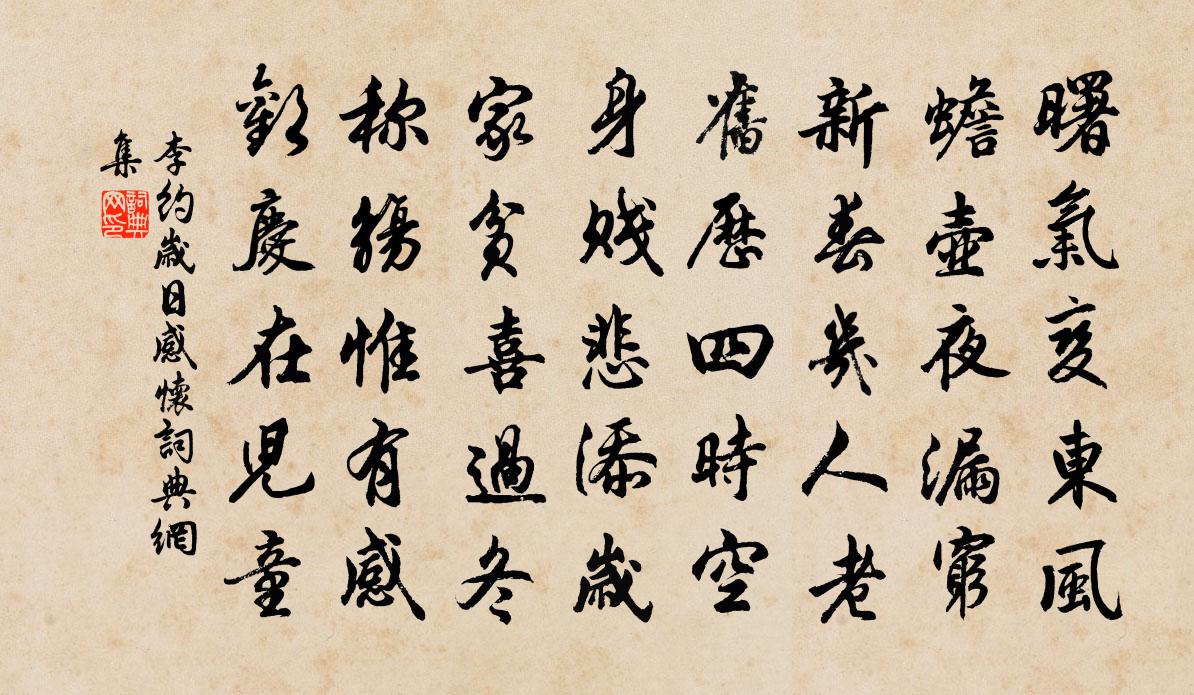 曙氣變東風
蟾壺夜漏窮
新春幾人老
舊曆四時空
身賤悲添歲
家貧喜過冬
称觴惟有感
歡慶在兒童
李約歲日感懷詞典網
集
詞典
网印